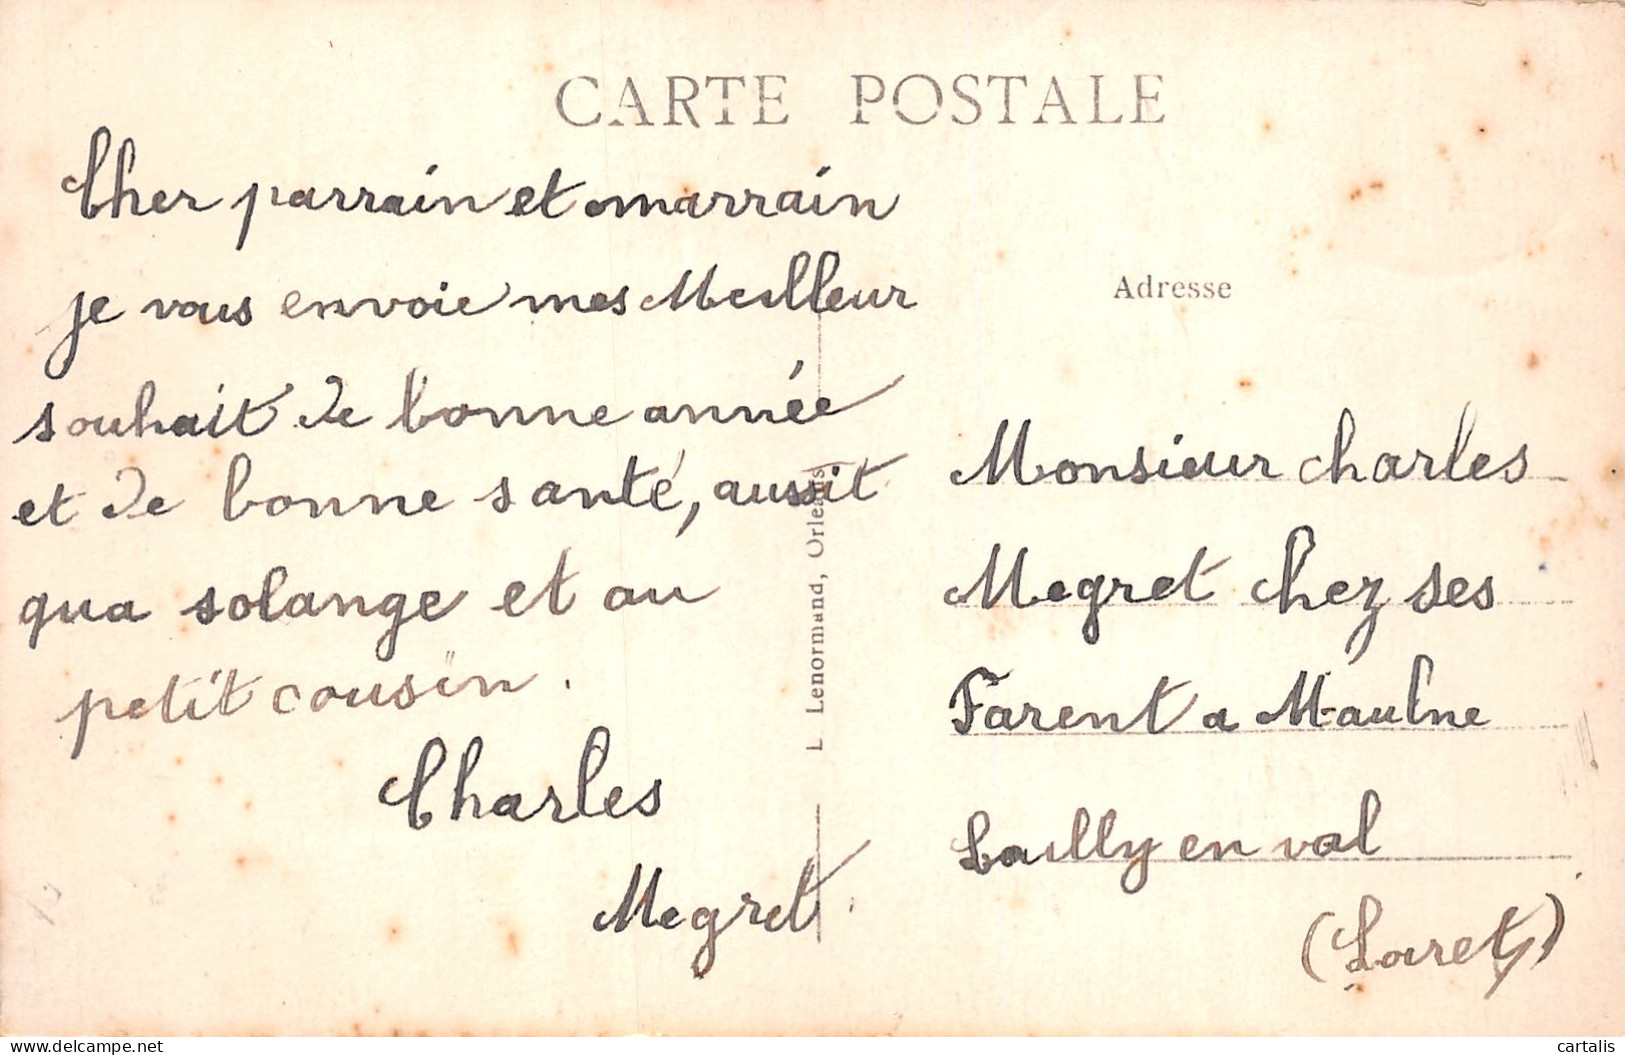 CARTE POSTALE
Cher parrain et marrain
je vous envoie mes Meilleur
souhait de bonne année
et de bonne santé, aussit
qua solange et au
petit cousin.
Charles
Megret.
L. Lenormand, Orléans
Adresse
Monsieur charles
Megret chez ses
Farent a M-aulne
Lailly en val
(Loiret)
www.delcampe.net
cartalis